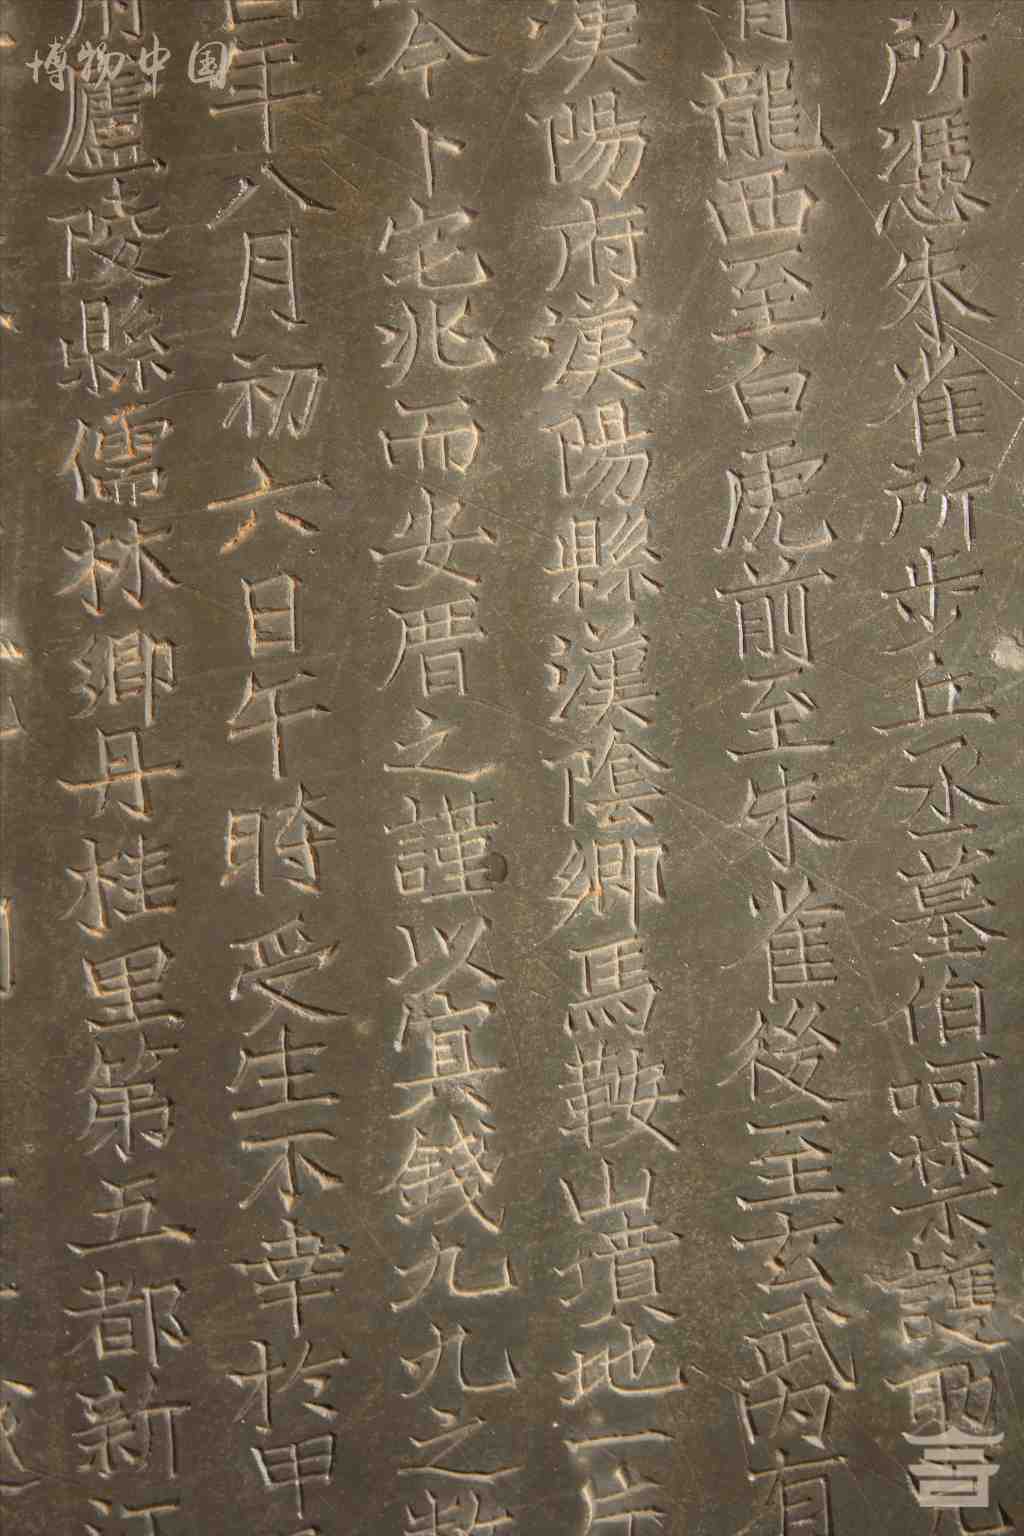 博物中国
廬陵縣儒林鄉丹桂里第五都新江
年八月初六日午時受生不幸於甲
今卜宅兆而安厝之謹以冥錢九九之數
漢陽府漢陽縣漢陰鄉馬鞍山墳地一
龍西至白虎前至朱雀後至玄武內有
所憑朱雀所步丘丞墓伯呵禁不護助